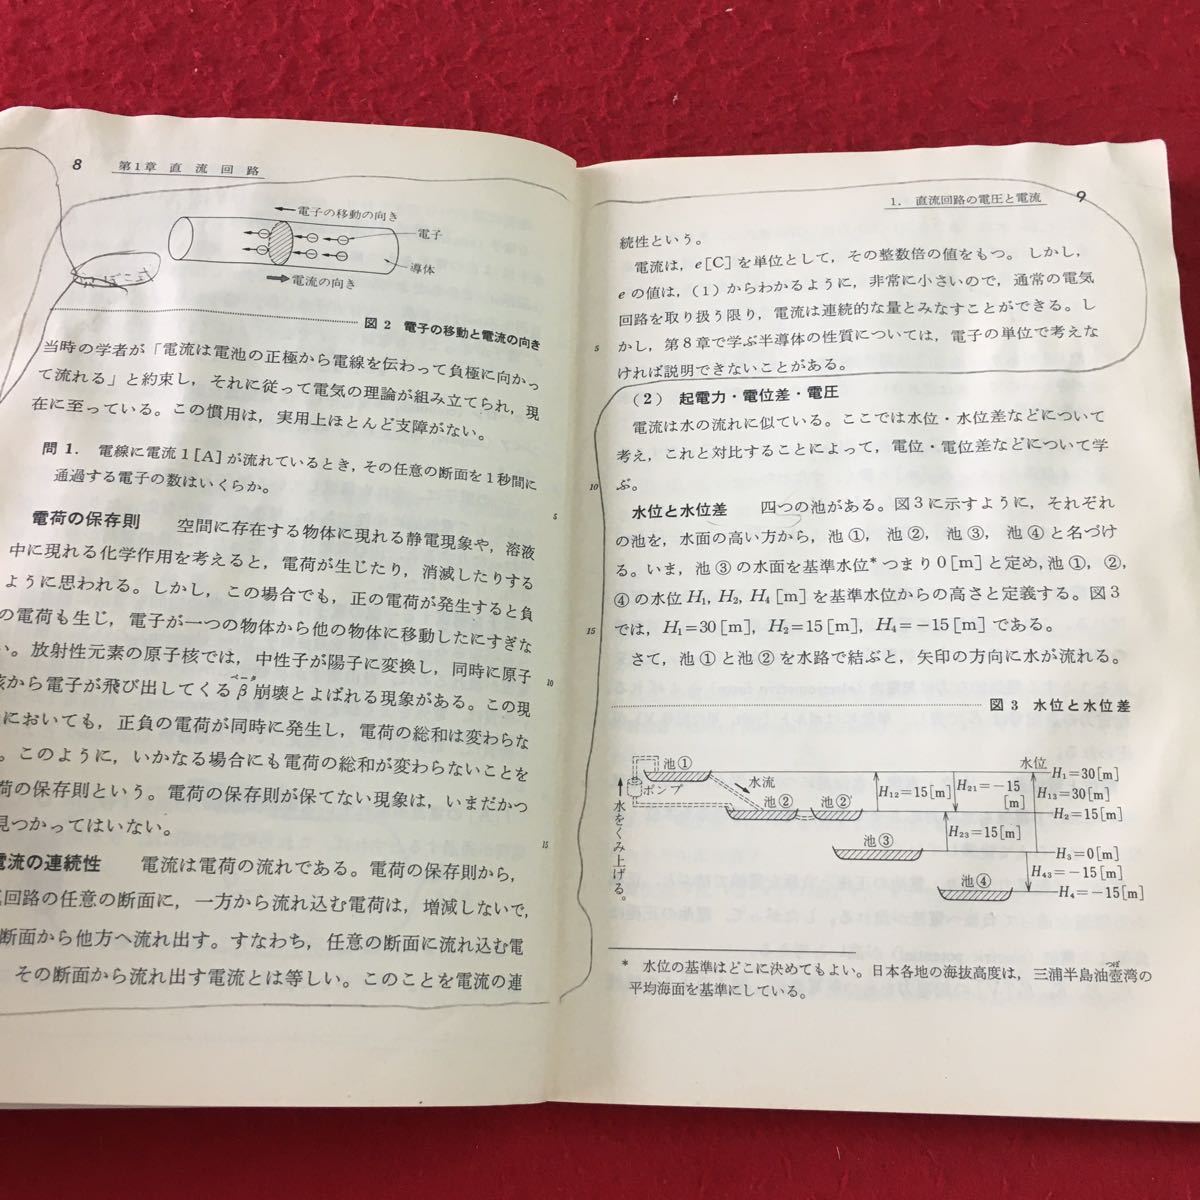 8 第1章 直流回路
電子の移動の向き
電子
導体
電流の向き
図2 電子の移動と電流の向き
当時の学者が「電流は電池の正極から電線を伝わって負極に向かっ
て流れる」と約束し，それに従って電気の理論が組み立てられ，現
在に至っている。この慣用は，実用上ほとんど支障がない。
問1. 電線に電流1[A]が流れているとき，その任意の断面を1秒間に
通過する電子の数はいくらか。
5
電荷の保存則 空間に存在する物体に現れる静電現象や，溶液
中に現れる化学作用を考えると，電荷が生じたり，消滅したりする
ように思われる。しかし，この場合でも，正の電荷が発生すると負
の電荷も生じ，電子が一つの物体から他の物体に移動したにすぎな
い。放射性元素の原子核では，中性子が陽子に変換し，同時に原子
10
核から電子が飛び出してくるβ崩壊とよばれる現象がある。この現
ベータ
においても，正負の電荷が同時に発生し，電荷の総和は変わらな
。このように，いかなる場合にも電荷の総和が変わらないことを
荷の保存則という。電荷の保存則が保てない現象は，いまだかつ
見つかってはいない。
15
電流の連続性 電流は電荷の流れである。電荷の保存則から，
回路の任意の断面に，一方から流れ込む電荷は，増減しないで，
断面から他方へ流れ出す。すなわち，任意の断面に流れ込む電
その断面から流れ出す電流とは等しい。このことを電流の連
1. 直流回路の電圧と電流 9
続性という。
電流は，e[C]を単位として，その整数倍の値をもつ。しかし，
eの値は，(1)からわかるように，非常に小さいので，通常の電気
回路を取り扱う限り，電流は連続的な量とみなすことができる。し
5
かし，第8章で学ぶ半導体の性質については，電子の単位で考えな
ければ説明できないことがある。
(2) 起電力・電位差・電圧
電流は水の流れに似ている。ここでは水位・水位差などについて
考え，これと対比することによって，電位・電位差などについて学
10
ぶ。
水位と水位差 四つの池がある。図3に示すように，それぞれ
の池を，水面の高い方から，池①，池②，池③，池④と名づけ
る。いま，池③の水面を基準水位*つまり0[m]と定め，池①，②，
④の水位H1, H2, H4[m]を基準水位からの高さと定義する。図3
15
では，H1=30[m]，H2=15[m]，H4=−15[m]である。
さて，池①と池②を水路で結ぶと，矢印の方向に水が流れる。
図3 水位と水位差
池①
水流
水位
ポンプ
水をくみ上げる。
池②
池②′
池③
池④
H12=15[m]
H21=−15[m]
H23=15[m]
H1=30[m]
H13=30[m]
H2=15[m]
H3=0[m]
H43=−15[m]
H4=−15[m]
* 水位の基準はどこに決めてもよい。日本各地の海抜高度は，三浦半島油壺湾の
つぼ
平均海面を基準にしている。